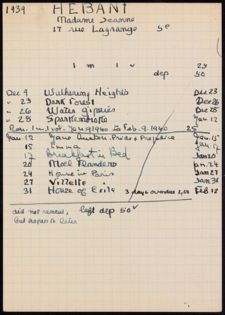 1939 HEBANT
Madame Jeanne
17 rue Lagrange 50
1 m 1 v. 25
dep 50
Dec 9 Wuthering Heights Dec 23
" 23 Dark Forest Dec 26
" 26 Water Gipsies Dec 28
" 28 Sparkenbroke Jan. 12
Ren. 1 m 1 vol. Jan 9 1940 to Feb. 9. 1940 25
Jan. 12 Jane Austen Pride & Prejudice Jan. 15
15 Emma Jan. 17
17 Breakfast in Bed Jan 20
20 Moll Flanders Jan. 24
24 House in Paris Jan 27
27 Villette Jan 31
31 House of Exile 3 days overdue 1,50 Feb 12
did not renew, left dep 50
but hopes to later